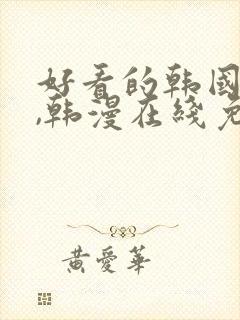 好看的韩国
,韩漫在线免
黄爱华